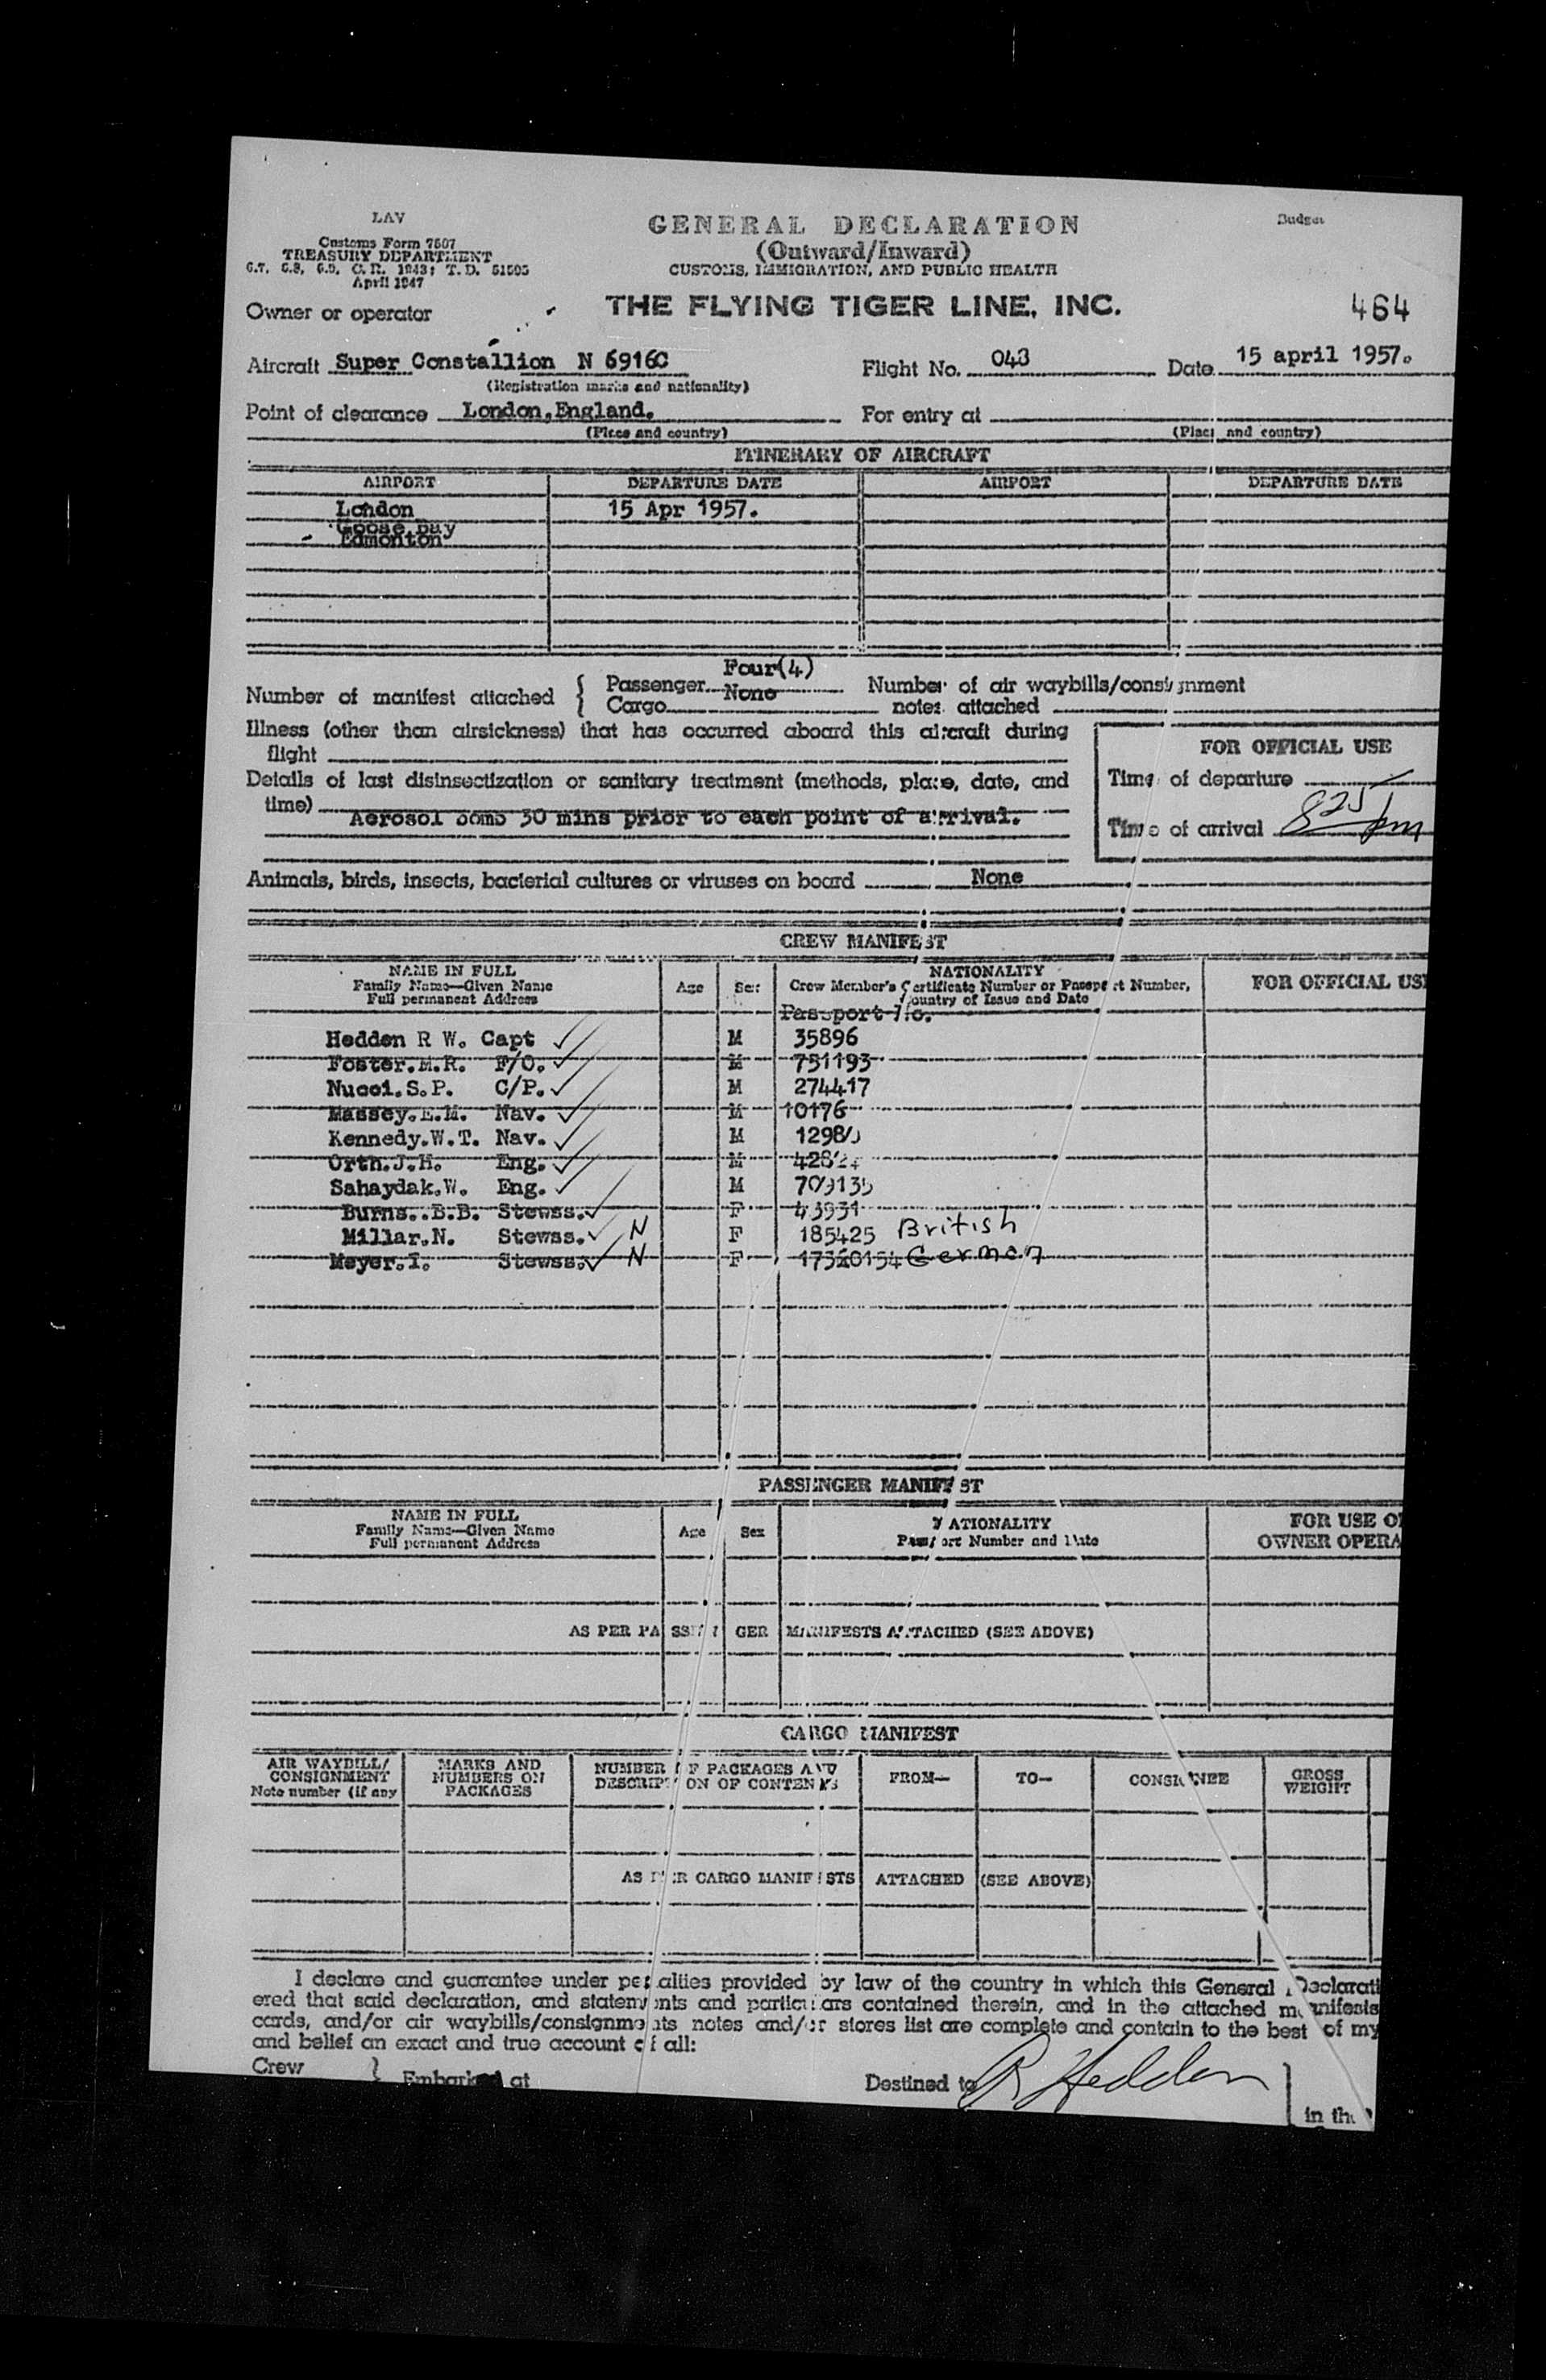 LAV
GENERAL DECLARATION
Budget
Customs Form 7507
(Outward/Inward)
TREASURY DEPARTMENT
CUSTOMS, IMMIGRATION, AND PUBLIC HEALTH
6.7, 6.8, 6.9, C. R. 1943; T. D. 51505
April 1947
Owner or operator
THE FLYING TIGER LINE, INC.
464
Aircraft Super Constallion N 6916C Flight No. 043 Date 15 april 1957.
(Registration marks and nationality)
Point of clearance London,England. For entry at
(Place and country) (Place and country)
ITINERARY OF AIRCRAFT
AIRPORT DEPARTURE DATE AIRPORT DEPARTURE DATE
London 15 Apr 1957.
Goose Bay
Edmonton
Four(4)
Number of manifest attached { Passenger None Number of air waybills/consignment
Cargo notes attached
Illness (other than airsickness) that has occurred aboard this aircraft during
flight
FOR OFFICIAL USE
Details of last disinsectization or sanitary treatment (methods, place, date, and
Time of departure
time) Aerosol bomb 30 mins prior to each point of arrival.
Time of arrival 825 pm
Animals, birds, insects, bacterial cultures or viruses on board None
CREW MANIFEST
NAME IN FULL
Family Name—Given Name
Full permanent Address
Age Sex
NATIONALITY
Crew Member's Certificate Number or Passport Number,
Country of Issue and Date
FOR OFFICIAL US
Passport No.
Hedden R W. Capt ✓ M 35896
Foster.M.R. F/O. ✓ M 751193
Nucci.S.P. C/P. ✓ M 274417
Massey.E.M. Nav. ✓ M 10176
Kennedy.W.T. Nav. ✓ M
Orth.J.H. Eng. ✓ M
Sahaydak.W. Eng. ✓ M 709135
Burns..B.B. Stewss. ✓ F 43931
Millar.N. Stewss. ✓ N F 185425 British
Meyer.I. Stewss. ✓ N F German
PASSENGER MANIFEST
NAME IN FULL
Family Name—Given Name
Full permanent Address
Age Sex
NATIONALITY
Passport Number and Date
FOR USE O
OWNER OPERA
AS PER PASSENGER MANIFESTS ATTACHED (SEE ABOVE)
CARGO MANIFEST
AIR WAYBILL/
CONSIGNMENT
Note number (if any
MARKS AND
NUMBERS ON
PACKAGES
NUMBER OF PACKAGES AND
DESCRIPTION OF CONTENTS
FROM— TO— CONSIGNEE
GROSS
WEIGHT
AS PER CARGO MANIFESTS ATTACHED (SEE ABOVE)
I declare and guarantee under penalties provided by law of the country in which this General Declarati
ered that said declaration, and statements and particulars contained therein, and in the attached manifests
cards, and/or air waybills/consignments notes and/or stores list are complete and contain to the best of my
and belief an exact and true account of all:
Crew } Embarked at Destined to R Hedden
in the